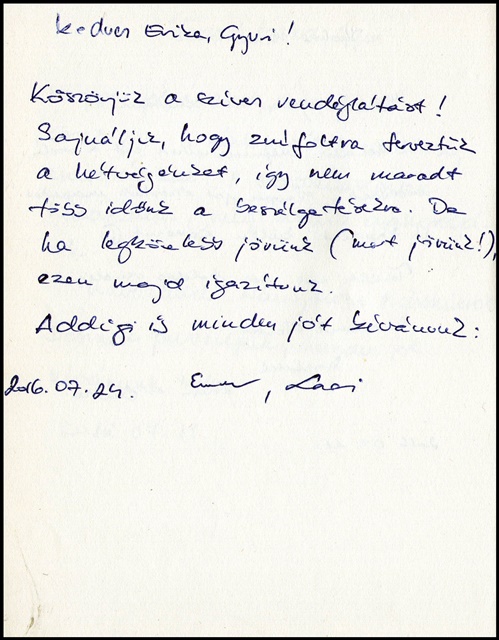 Kedves Erika, Gyuri!
Köszönjük a szíves vendéglátást!
Sajnáljuk, hogy zsúfoltra terveztük
a hétvégénket, így nem maradt
több időnk a beszélgetésekre. De
ha legközelebb jövünk (mert jövünk!),
ezen majd igazítunk.
Addig is minden jót kívánunk:
2016.07.24. , Laci